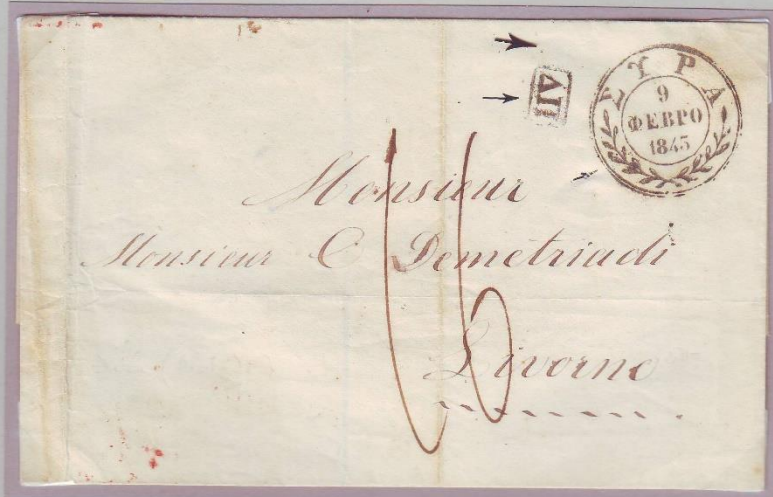 ΣΥΡΑ
9
ΦΕΒΡΟ
1845
ΔΠ
Monsieur
Monsieur C Demetriadi
Livorno
16